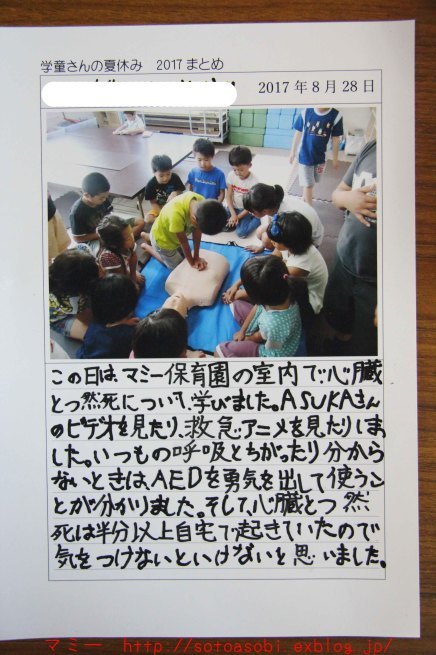 学童さんの夏休み 2017まとめ
2017年8月28日
この日は、マミー保育園の室内で、心臓
とつ然死について、学びました。ASUKAさん
のビデオを見たり、救急アニメを見たりしま
した。いつもの呼吸とちがったり分から
ないときは、AEDを勇気を出して使うこ
とが分かりました。そして、心臓とつ然
死は半分以上自宅で起きていたので
気をつけないといけないと思いました。
マミー http://sotoasobi.exblog.jp/